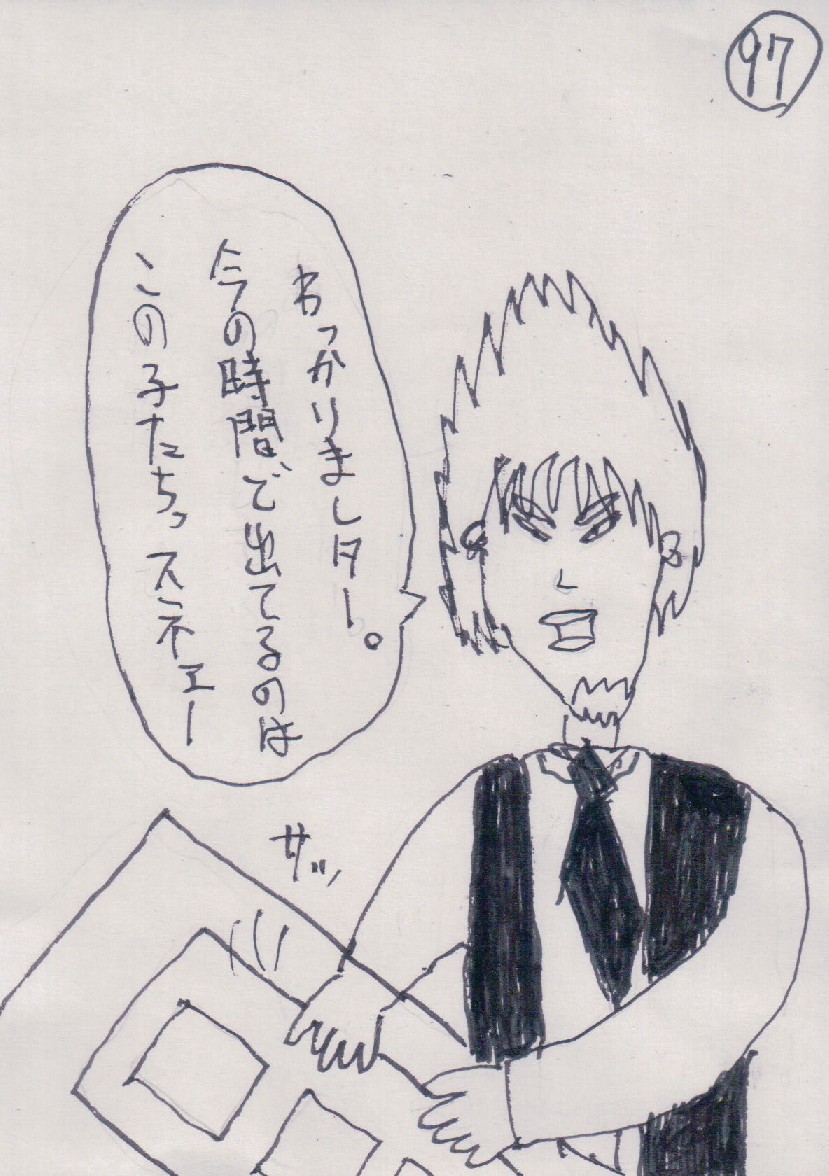 97
わっかりましター。
今の時間で出てるのは
この子たちっスネェー
サッ